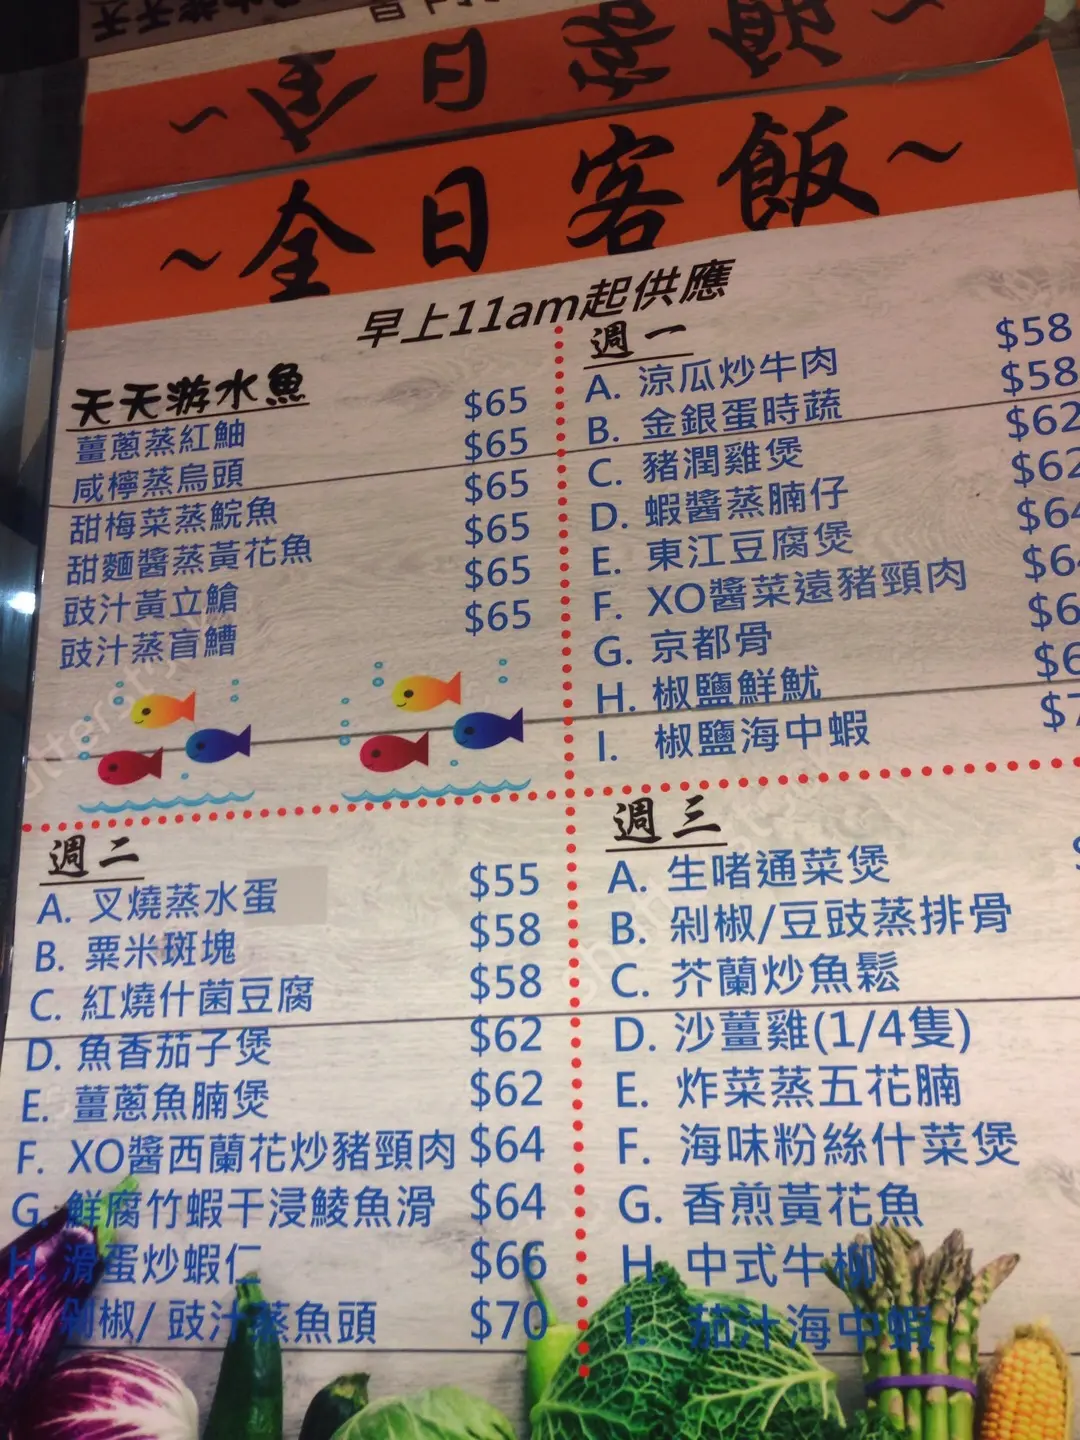 ~全日客飯~
早上11am起供應
天天游水魚
薑蔥蒸紅鮋 $65
咸檸蒸烏頭 $65
甜梅菜蒸鯇魚 $65
甜麵醬蒸黃花魚 $65
豉汁黃立鱠 $65
豉汁蒸盲鰽 $65
週一
A. 涼瓜炒牛肉 $58
B. 金銀蛋時蔬 $58
C. 豬潤雞煲 $62
D. 蝦醬蒸腩仔 $62
E. 東江豆腐煲 $64
F. XO醬菜遠豬頸肉
G. 京都骨
H. 椒鹽鮮魷
I. 椒鹽海中蝦
週二
A. 叉燒蒸水蛋 $55
B. 粟米斑塊 $58
C. 紅燒什菌豆腐 $58
D. 魚香茄子煲 $62
E. 薑蔥魚腩煲 $62
F. XO醬西蘭花炒豬頸肉 $64
G. 鮮腐竹蝦干浸鯪魚滑 $64
H. 滑蛋炒蝦仁 $66
I. 剁椒/豉汁蒸魚頭 $70
週三
A. 生啫通菜煲
B. 剁椒/豆豉蒸排骨
C. 芥蘭炒魚鬆
D. 沙薑雞(1/4隻)
E. 炸菜蒸五花腩
F. 海味粉絲什菜煲
G. 香煎黃花魚
H. 中式牛柳
I. 茄汁海中蝦